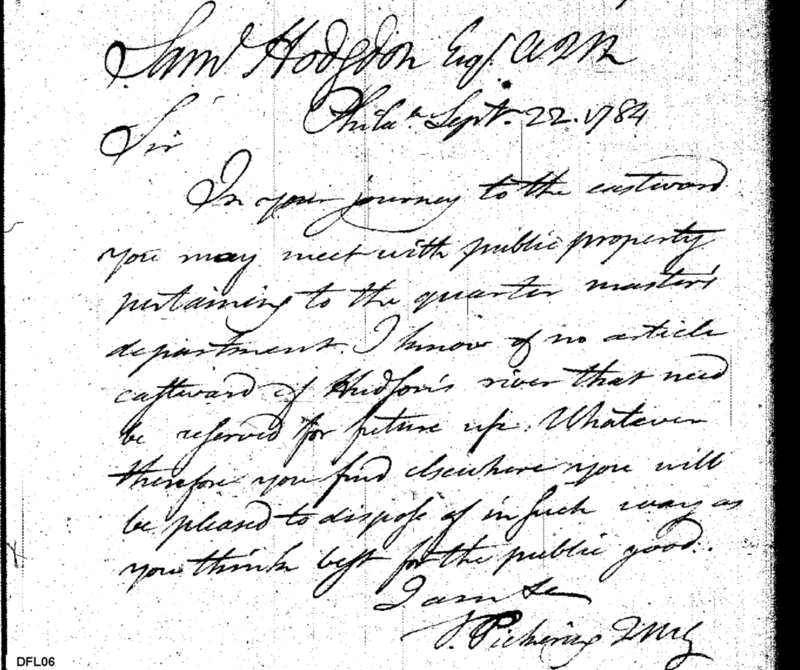 Saml Hodgdon Esqr. A2M
Phila. Septr. 22. 1784
Sir
In your journey to the eastward
you may meet with public property
pertaining to the quarter master's
department. I know of no article
eastward of Hudson's river that need
be reserved for future use. Whatever
therefore you find elsewhere you will
be pleased to dispose of in such way as
you think best for the public good.
I am &c
T. Pickering QMG
DFL06